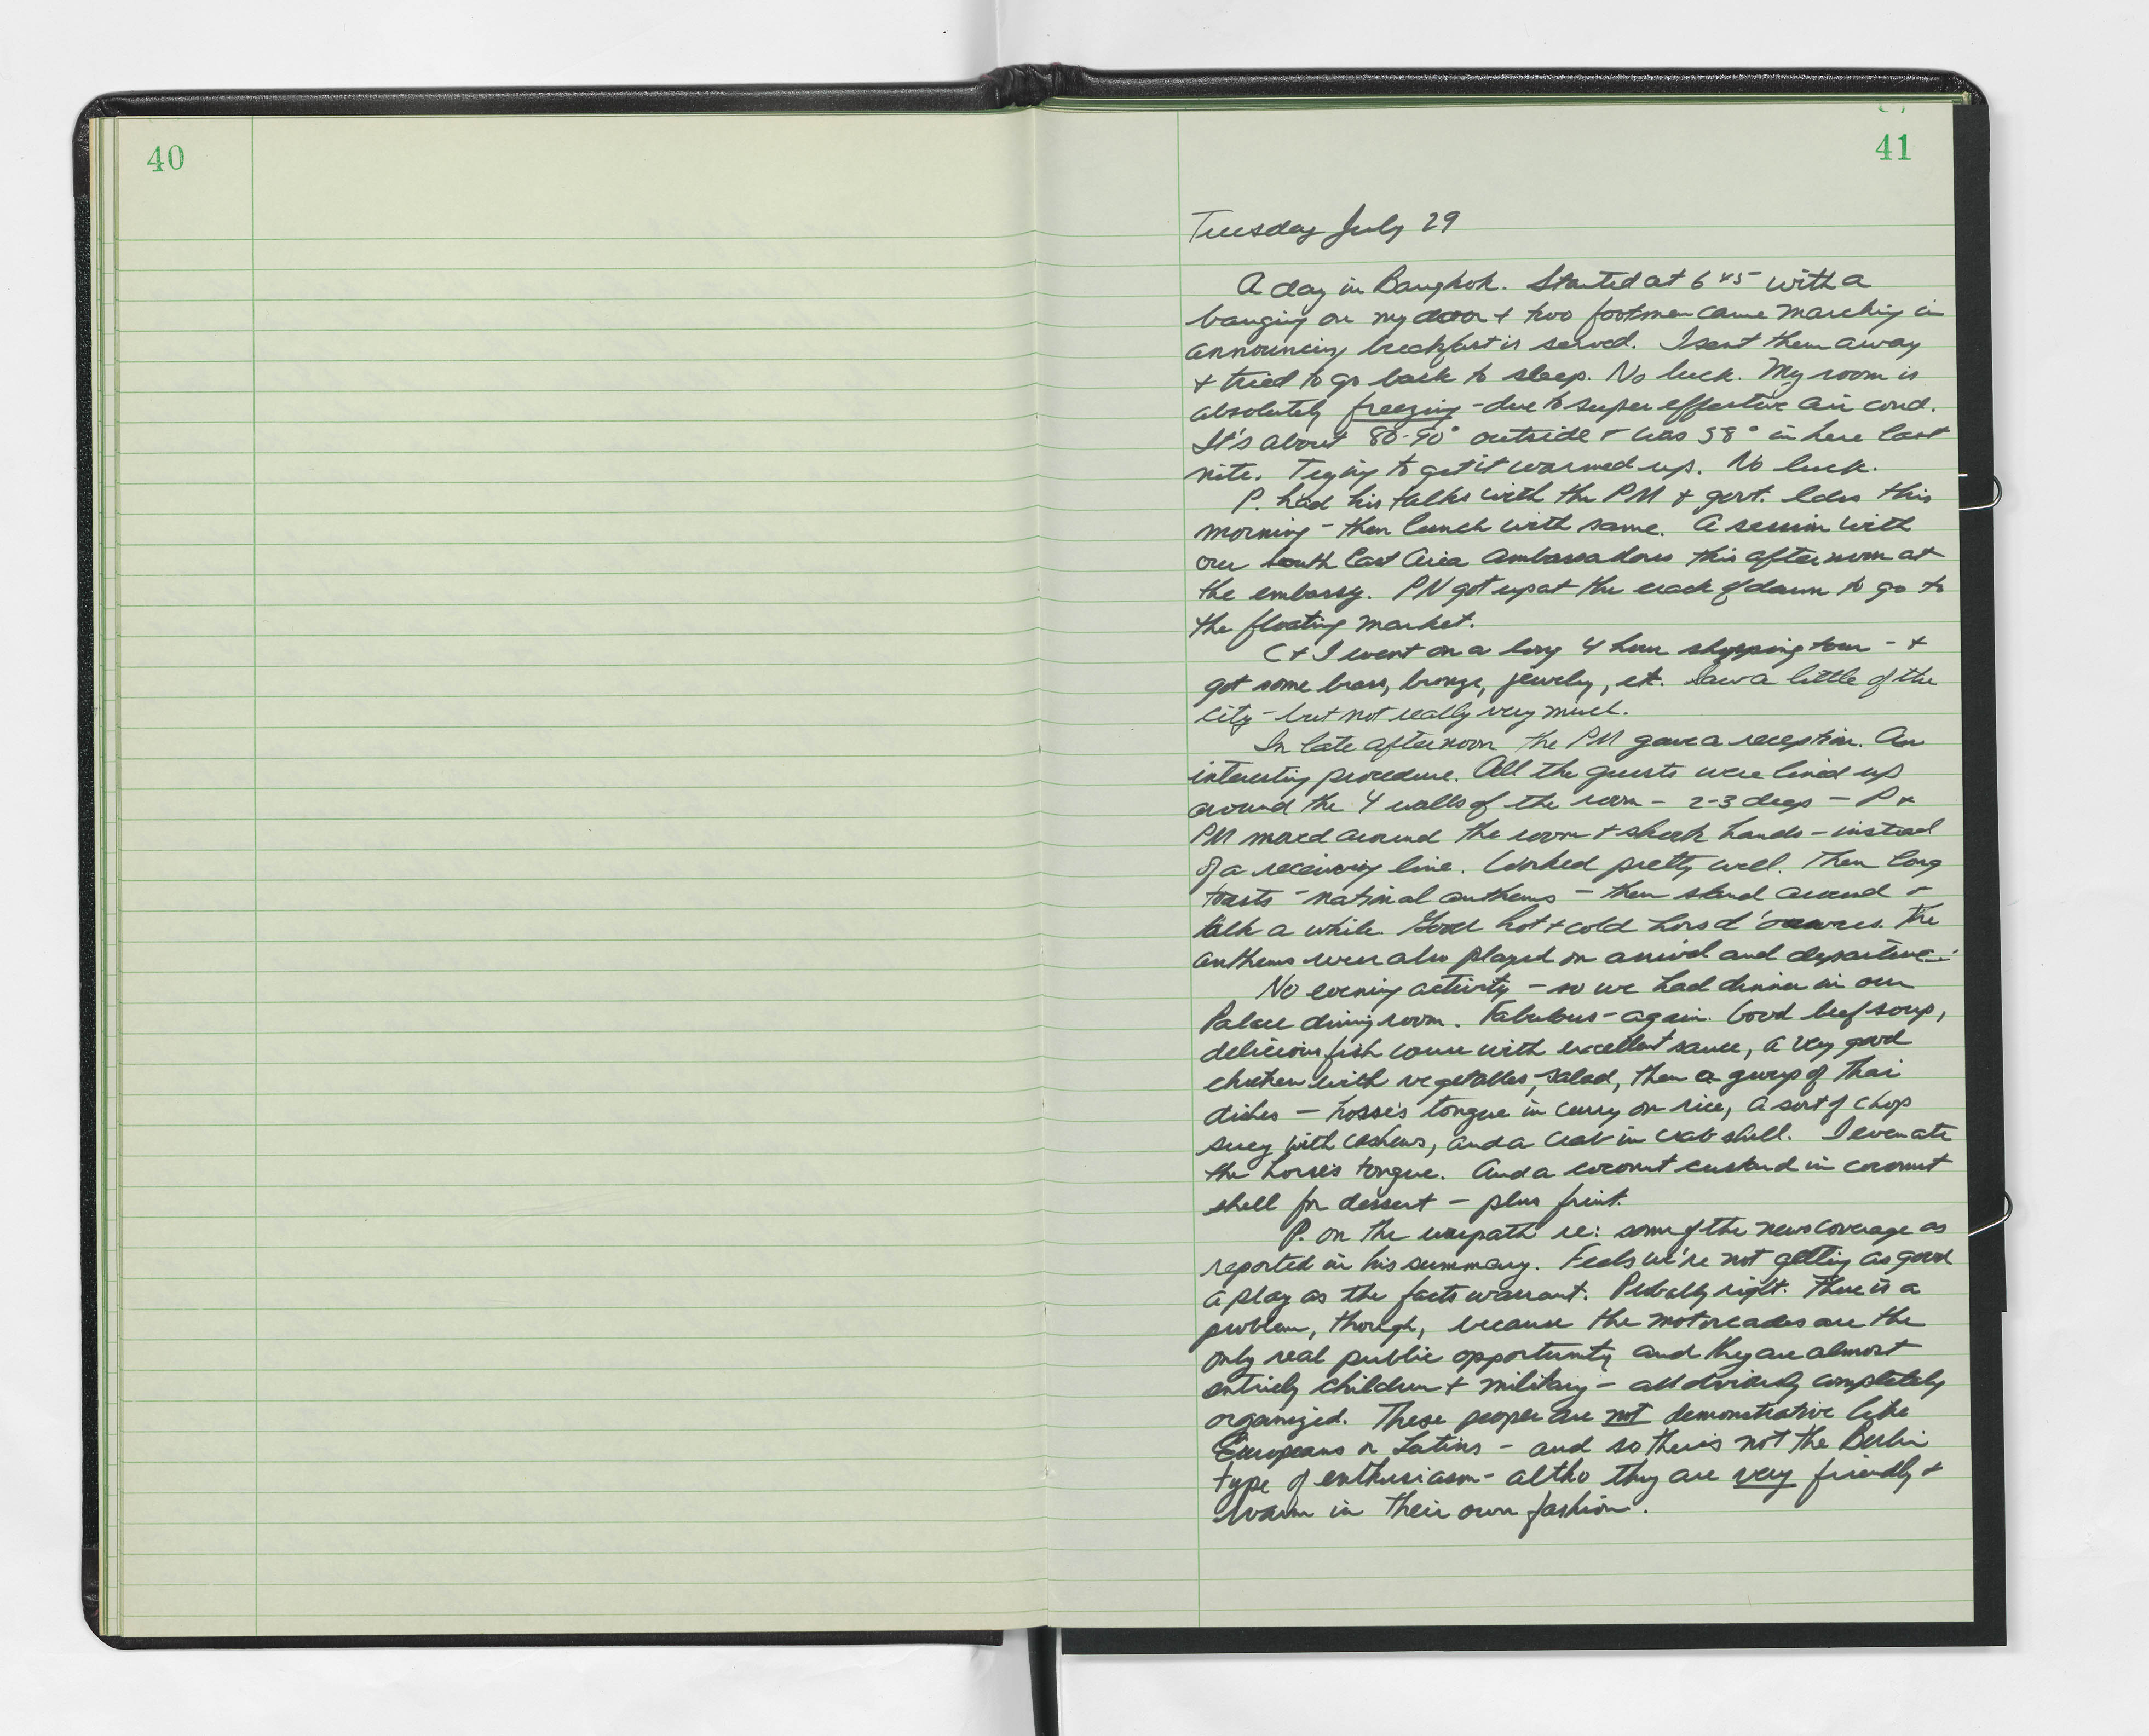 40
41
Tuesday July 29
A day in Bangkok. Started at 6 45 with a
banging on my door + two footmen came marching in
announcing breakfast is served. I sent them away
+ tried to go back to sleep. No luck. My room is
absolutely freezing - due to super effective air cond.
It's about 80-90° outside + was 58° in here last
nite. Trying to get it warmed up. No luck.
P. had his talks with the PM + govt. ldrs this
morning - then lunch with same. A session with
our South East Asia Ambassadors this afternoon at
the embassy. PN got up at the crack of dawn to go to
the floating market.
C + I went on a long 4 hour shopping tour - +
got some brass, bronze, jewelry, etc. Saw a little of the
city - but not really very much.
In late afternoon the PM gave a reception. An
interesting procedure. All the guests were lined up
around the 4 walls of the room - 2-3 deep - P +
PM moved around the room + shook hands - instead
of a receiving line. Worked pretty well. Then long
toasts - national anthems - then stand around +
talk a while. Good hot + cold hors d'
The
anthems were also played on arrival and departure.
No evening activity - so we had dinner in our
Palace dining room. Fabulous - again. Good beef soup,
delicious fish course with excellent sauce, a very good
chicken with vegetables, salad, then a group of Thai
dishes - horse's tongue in curry on rice, a sort of chop
suey with cashews, and a crab in crab shell. I even ate
the horse's tongue. And a coconut custard in coconut
shell for dessert - plus fruit.
P. on the warpath re: some of the news coverage as
reported in his summary. Feels we're not getting as good
a play as the facts warrant. Probably right. There is a
problem, though, because the motorcades are the
only real public opportunity and they are almost
entirely children + military - all obviously completely
organized. These people are not demonstrative like
Europeans or Latins - and so there's not the Berlin
type of enthusiasm - altho they are very friendly +
warm in their own fashion.